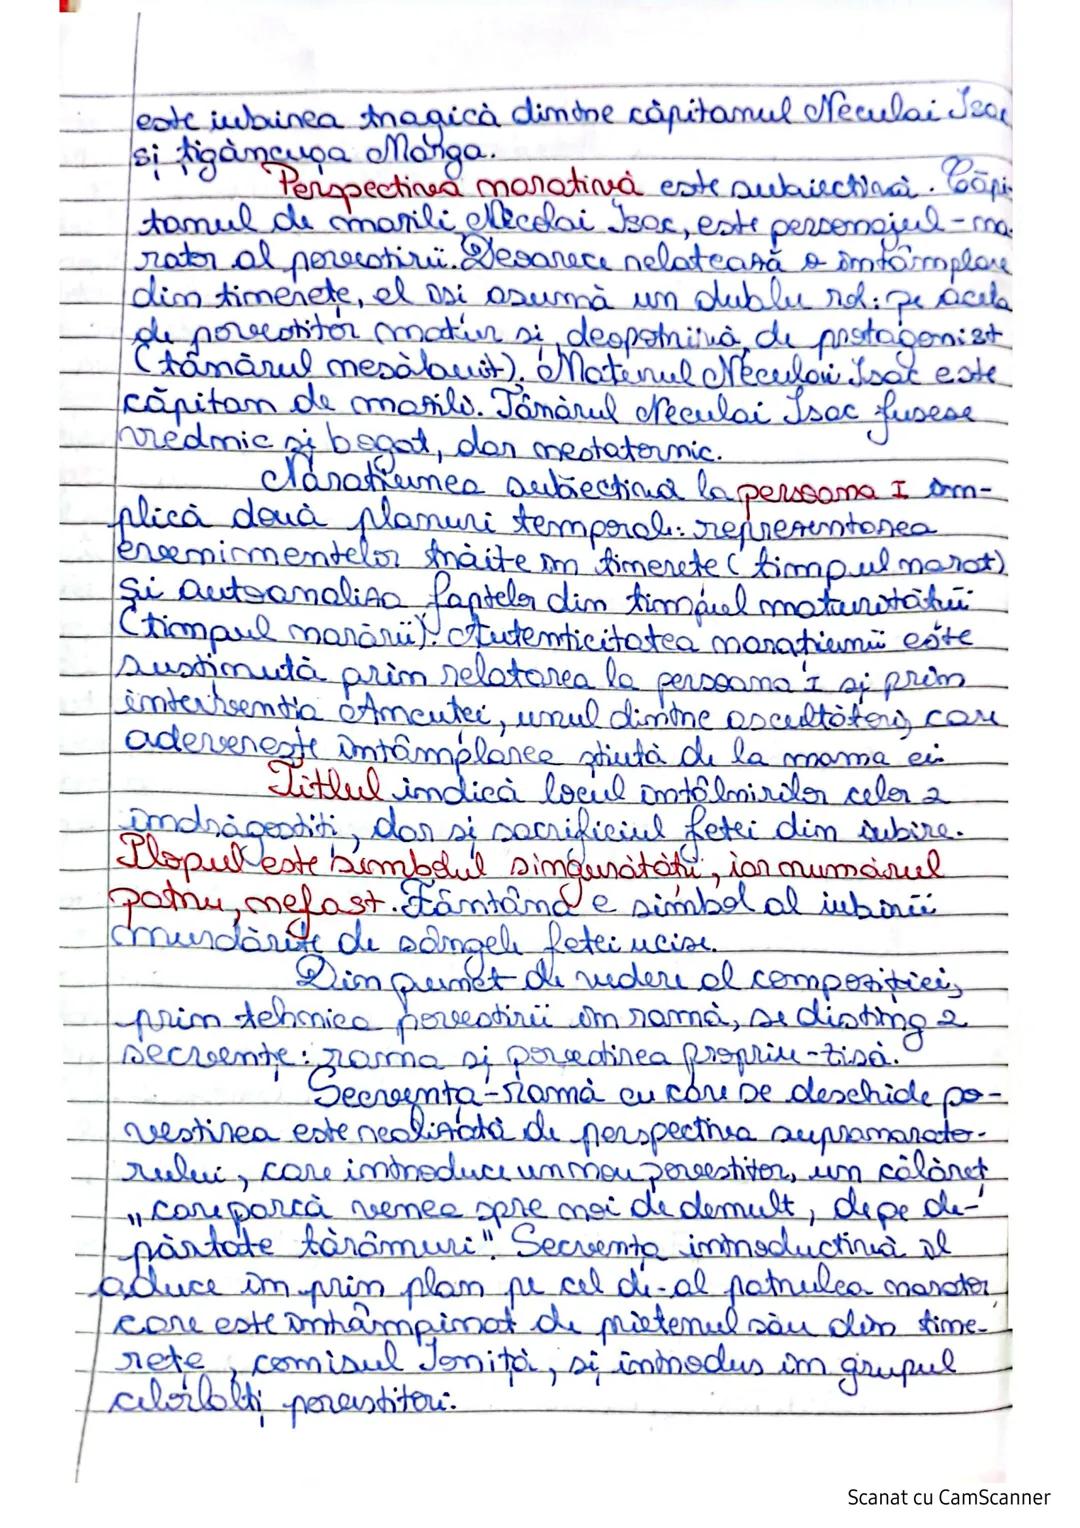 este iubirea tragică dintre căpitanul Neculai Isac
și țigăncușa Marga.
Perspectiva narativă este subiectivă. Căpi-
tanul de mazili Neculai Isac, este personajul-na-
rator al povestirii. Deoarece relatează o întâmplare
din tinerețe, el își asumă un dublu rol: pe acela
de povestitor matur și, deopotrivă, de protagonist
(tânărul nesăbuit). Maturul Neculai Isac este
căpitan de mazili. Tânărul Neculai Isac fusese
vrednic și bogat, dar nestatornic.
Narațiunea subiectivă la persoana I im-
plică două planuri temporale: reprezentarea
evenimentelor trăite în tinerețe (timpul narat)
și autoanaliza faptelor din timpul maturității
(timpul narării). Autenticitatea narațiunii este
susținută prin relatarea la persoana I și prin
intervenția Ancuței, unul dintre ascultători, care
adeverește întâmplarea știută de la mama ei.
Titlul indică locul întâlnirilor celor 2
îndrăgostiți, dar și sacrificiul fetei din iubire.
Plopul este simbolul singurătății, iar numărul
patru, nefast. Fântâna e simbol al iubirii
murdărite de sângele fetei ucise.
Din punct de vedere al compoziției,
prin tehnica povestirii în ramă, se disting 2
secvențe: rama și povestirea propriu-zisă.
Secvența-ramă cu care se deschide po-
vestirea este realizată de perspectiva supranarato-
rului, care introduce un nou povestitor, un călăreț
„care parcă venea spre noi de demult, de pe de-
părtate tărâmuri". Secvența introductivă îl
aduce în prim plan pe cel de-al patrulea narator
care este întâmpinat de prietenul său din tine-
rețe, comisul Ioniță, și introdus în grupul
celorlalți povestitori.
Scanat cu CamScanner